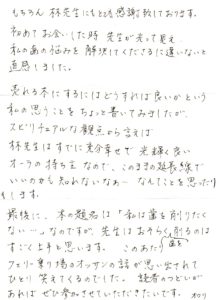 もちろん 林先生にもとても感謝致しております。
初めてお会いした時 先生が光って見え
私のあの悩みを解決してくださるに違いないと
直感しました。
売れる本にするにはどうすれば良いかという
私の思うことをちょっと書いてみましたが、
スピリチュアルな観点から言えば
林先生はすでに充分幸せで 光輝く良い
オーラの持ち主なので、このままの延長線で
いいのかも知れないなぁー なんてことを思ったり
もします。
最後に、本の題名は「私は歯を削りたく
ない…」なのですが、先生はおそらく歯を削るのは
すごく上手と思います。 このあたり
フェリー乗り場のオッサンの話が思い出されて
ひとり笑えてくるのでした。 読者のつどいが
あれば ぜひ参加させていただきたいです。